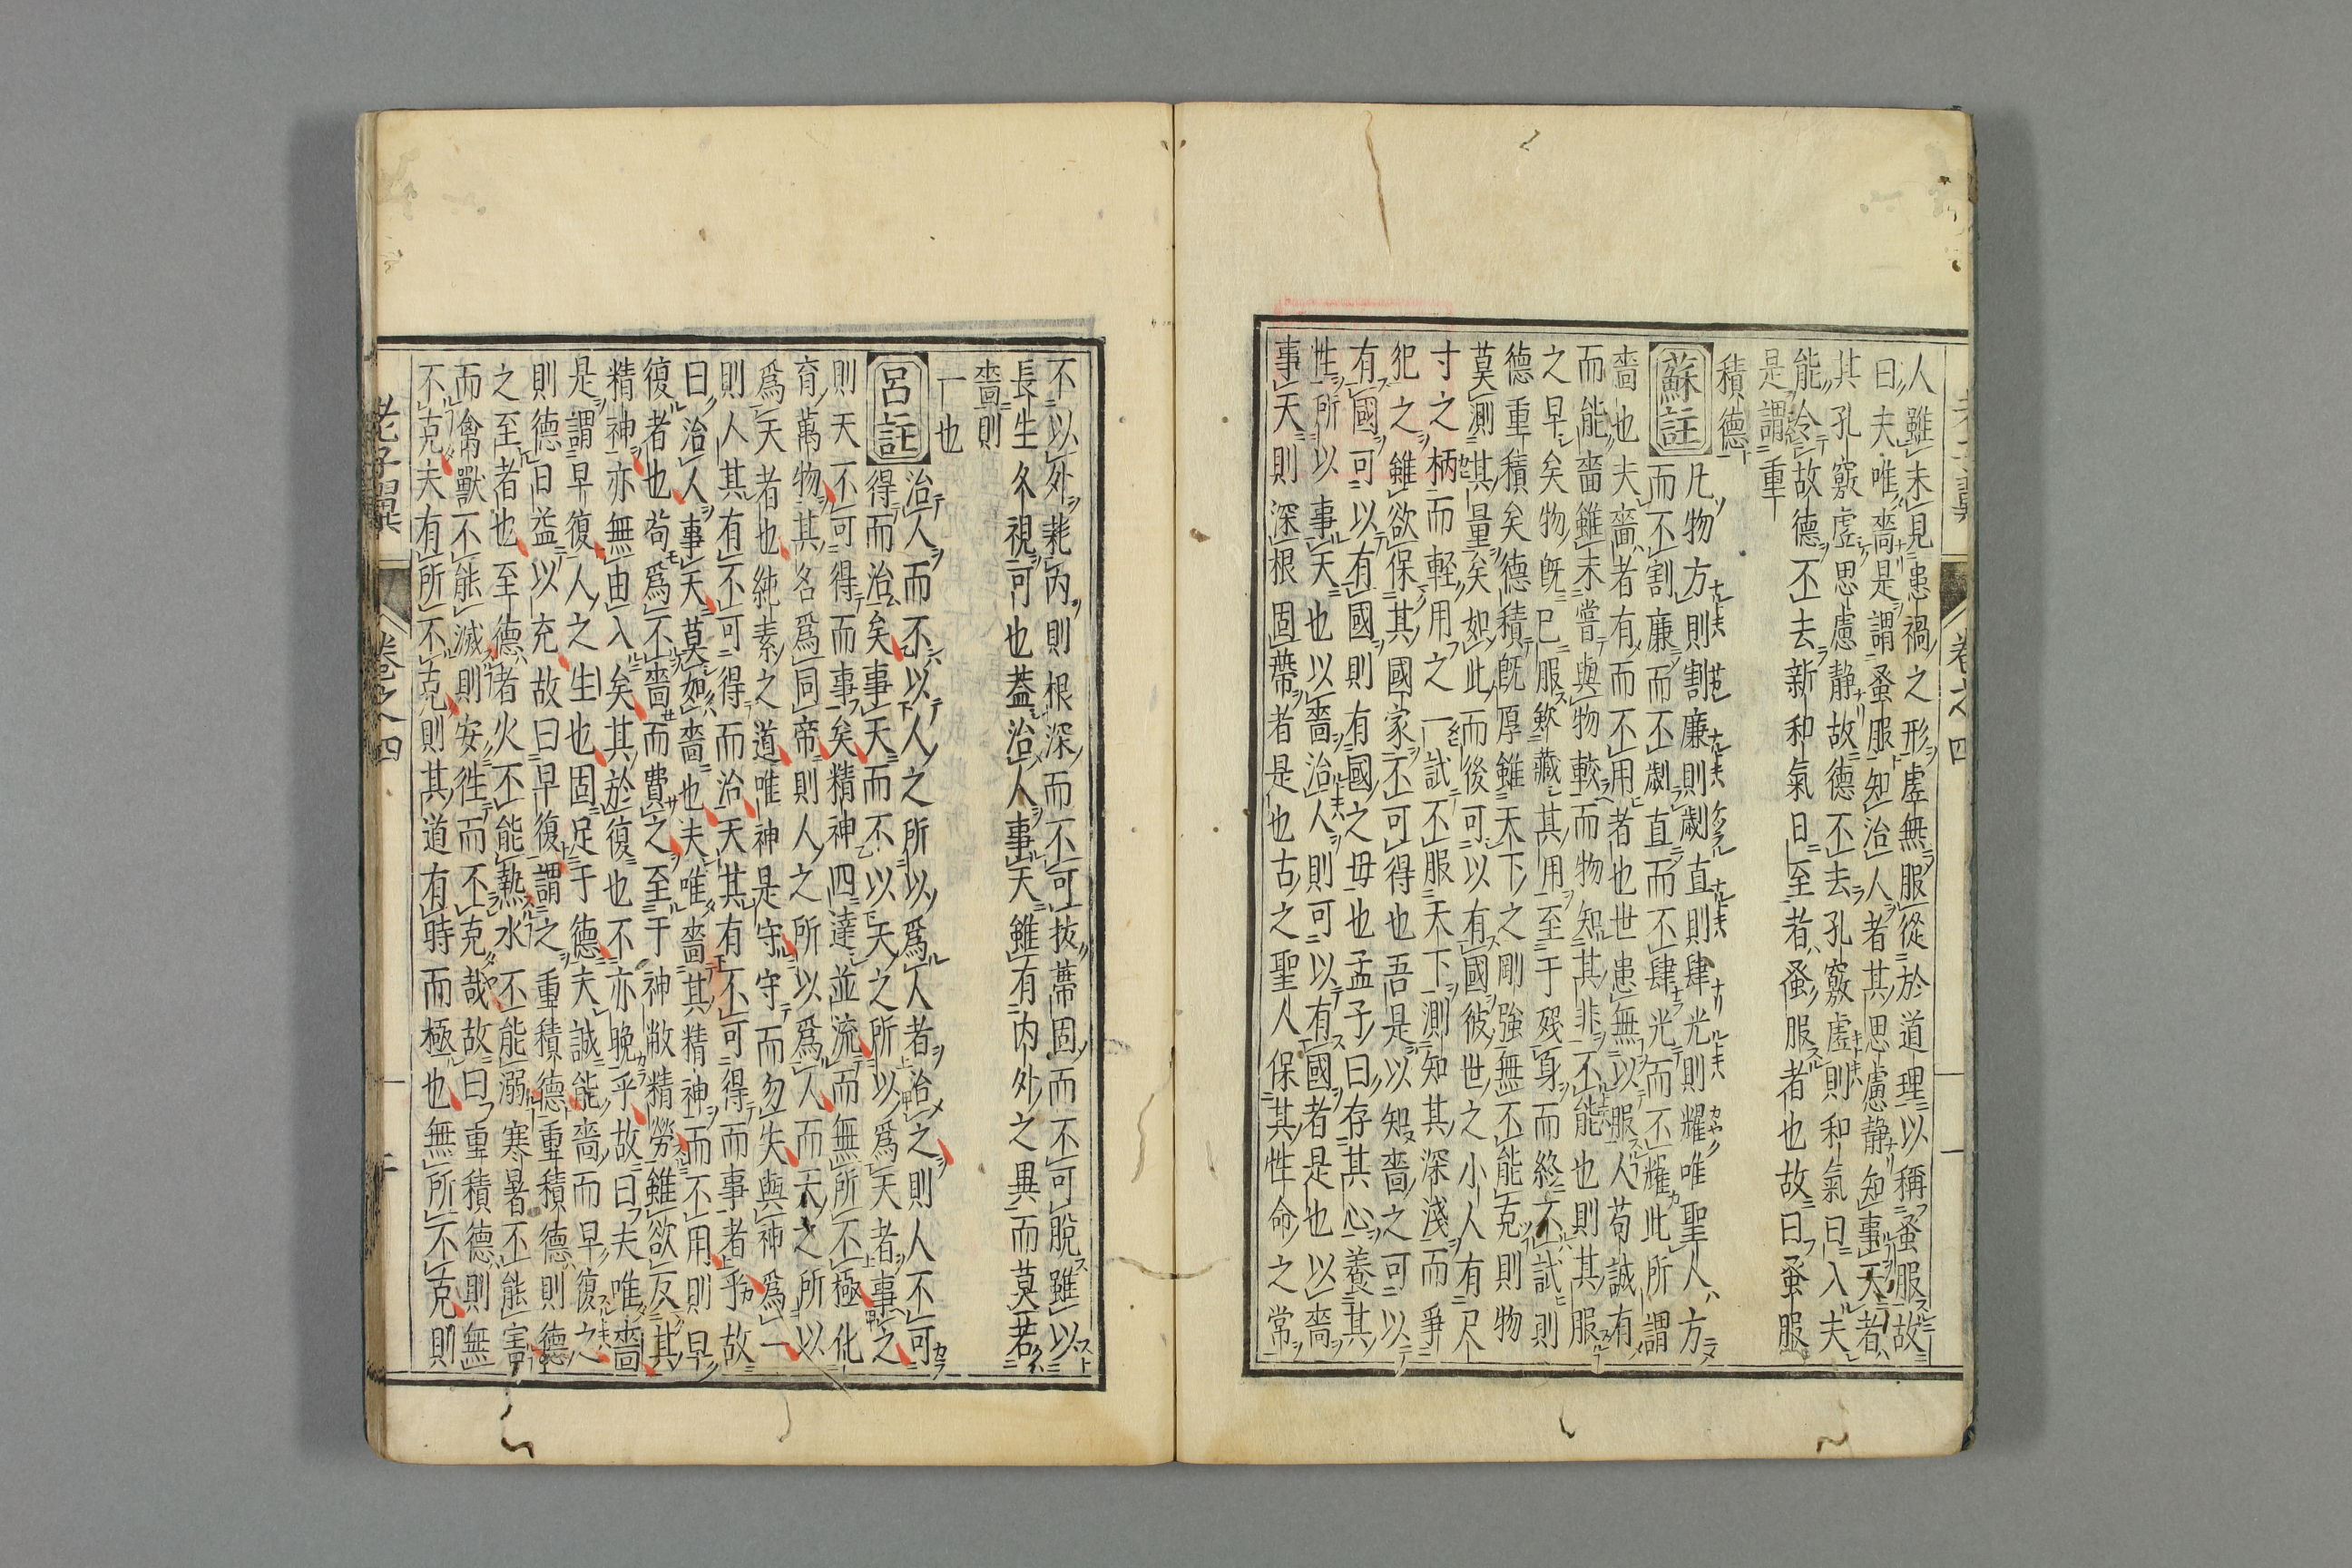 人雖未見患禍之形虛無服從於道理以稱蚤服故
曰夫唯嗇是謂蚤服知治人者其思慮静知事天者
其孔竅虛思慮静故德不去孔竅虛則和氣日入夫
能令故德不去新和氣日至者蚤服者也故曰蚤服
是謂重
積德
蘇註 凡物方則割廉則劌直則肆光則耀唯聖人方
而不割廉而不劌直而不肆光而不耀此所謂
嗇也夫嗇者有而不用者也世患無以服人苟誠有
而能嗇雖未嘗與物較而物知其非不能也則其服
之早矣物既已服斂藏其用至于歿身而終不試則
德重積矣德積既厚雖天下之剛強無不能克則物
莫測其量矣如此而後可以有國彼世之小人有尺
寸之柄而輕用之一試不服天下測知其深淺而爭
犯之雖欲保其國家不可得也吾是以知嗇之可以
有國可以有國則有國之母也孟子曰存其心養其
性所以事天也以嗇治人則可以有國者是也以嗇
事天則深根固蔕者是也古之聖人保其性命之常
不以外耗內則根深而不可拔蔕固而不可脫雖以
長生久視可也蓋治人事天雖有內外之異而莫若
嗇則
一也
呂註 治人而不以人之所以爲人者治之則人不可
得而治矣事天而不以天之所以爲天者事之
則天不可得而事矣精神四達並流而無所不極化
育萬物其名爲同帝則人之所以爲人而天之所以
爲天者也純素之道唯神是守守而勿失與神爲一
則人其有不可得而治天其有不可得而事者乎故
曰治人事天莫如嗇也夫唯嗇其精神而不用則早
復者也苟爲不嗇而費之至于神敝精勞雖欲反其
精神亦無由入矣其於復也不亦晚乎故曰夫唯嗇
是謂早復人之生也固足于德夫誠能嗇而早復之
則德日益以充故曰早復謂之重積德重積德則德
之至者也至德者火不能熱水不能溺寒暑不能害
而禽獸不能滅則安徃而不克哉故曰重積德則無
不克夫有所不克則其道有時而極也無所不克則
老子翼 卷之四